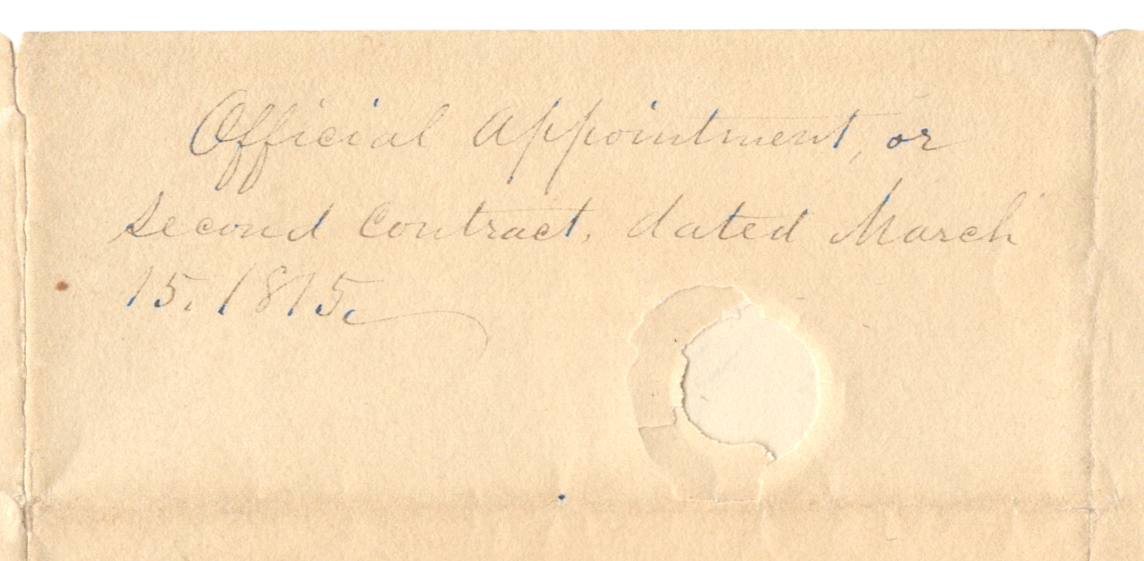 Official Appointment, or
second Contract, dated March
15. 1875.